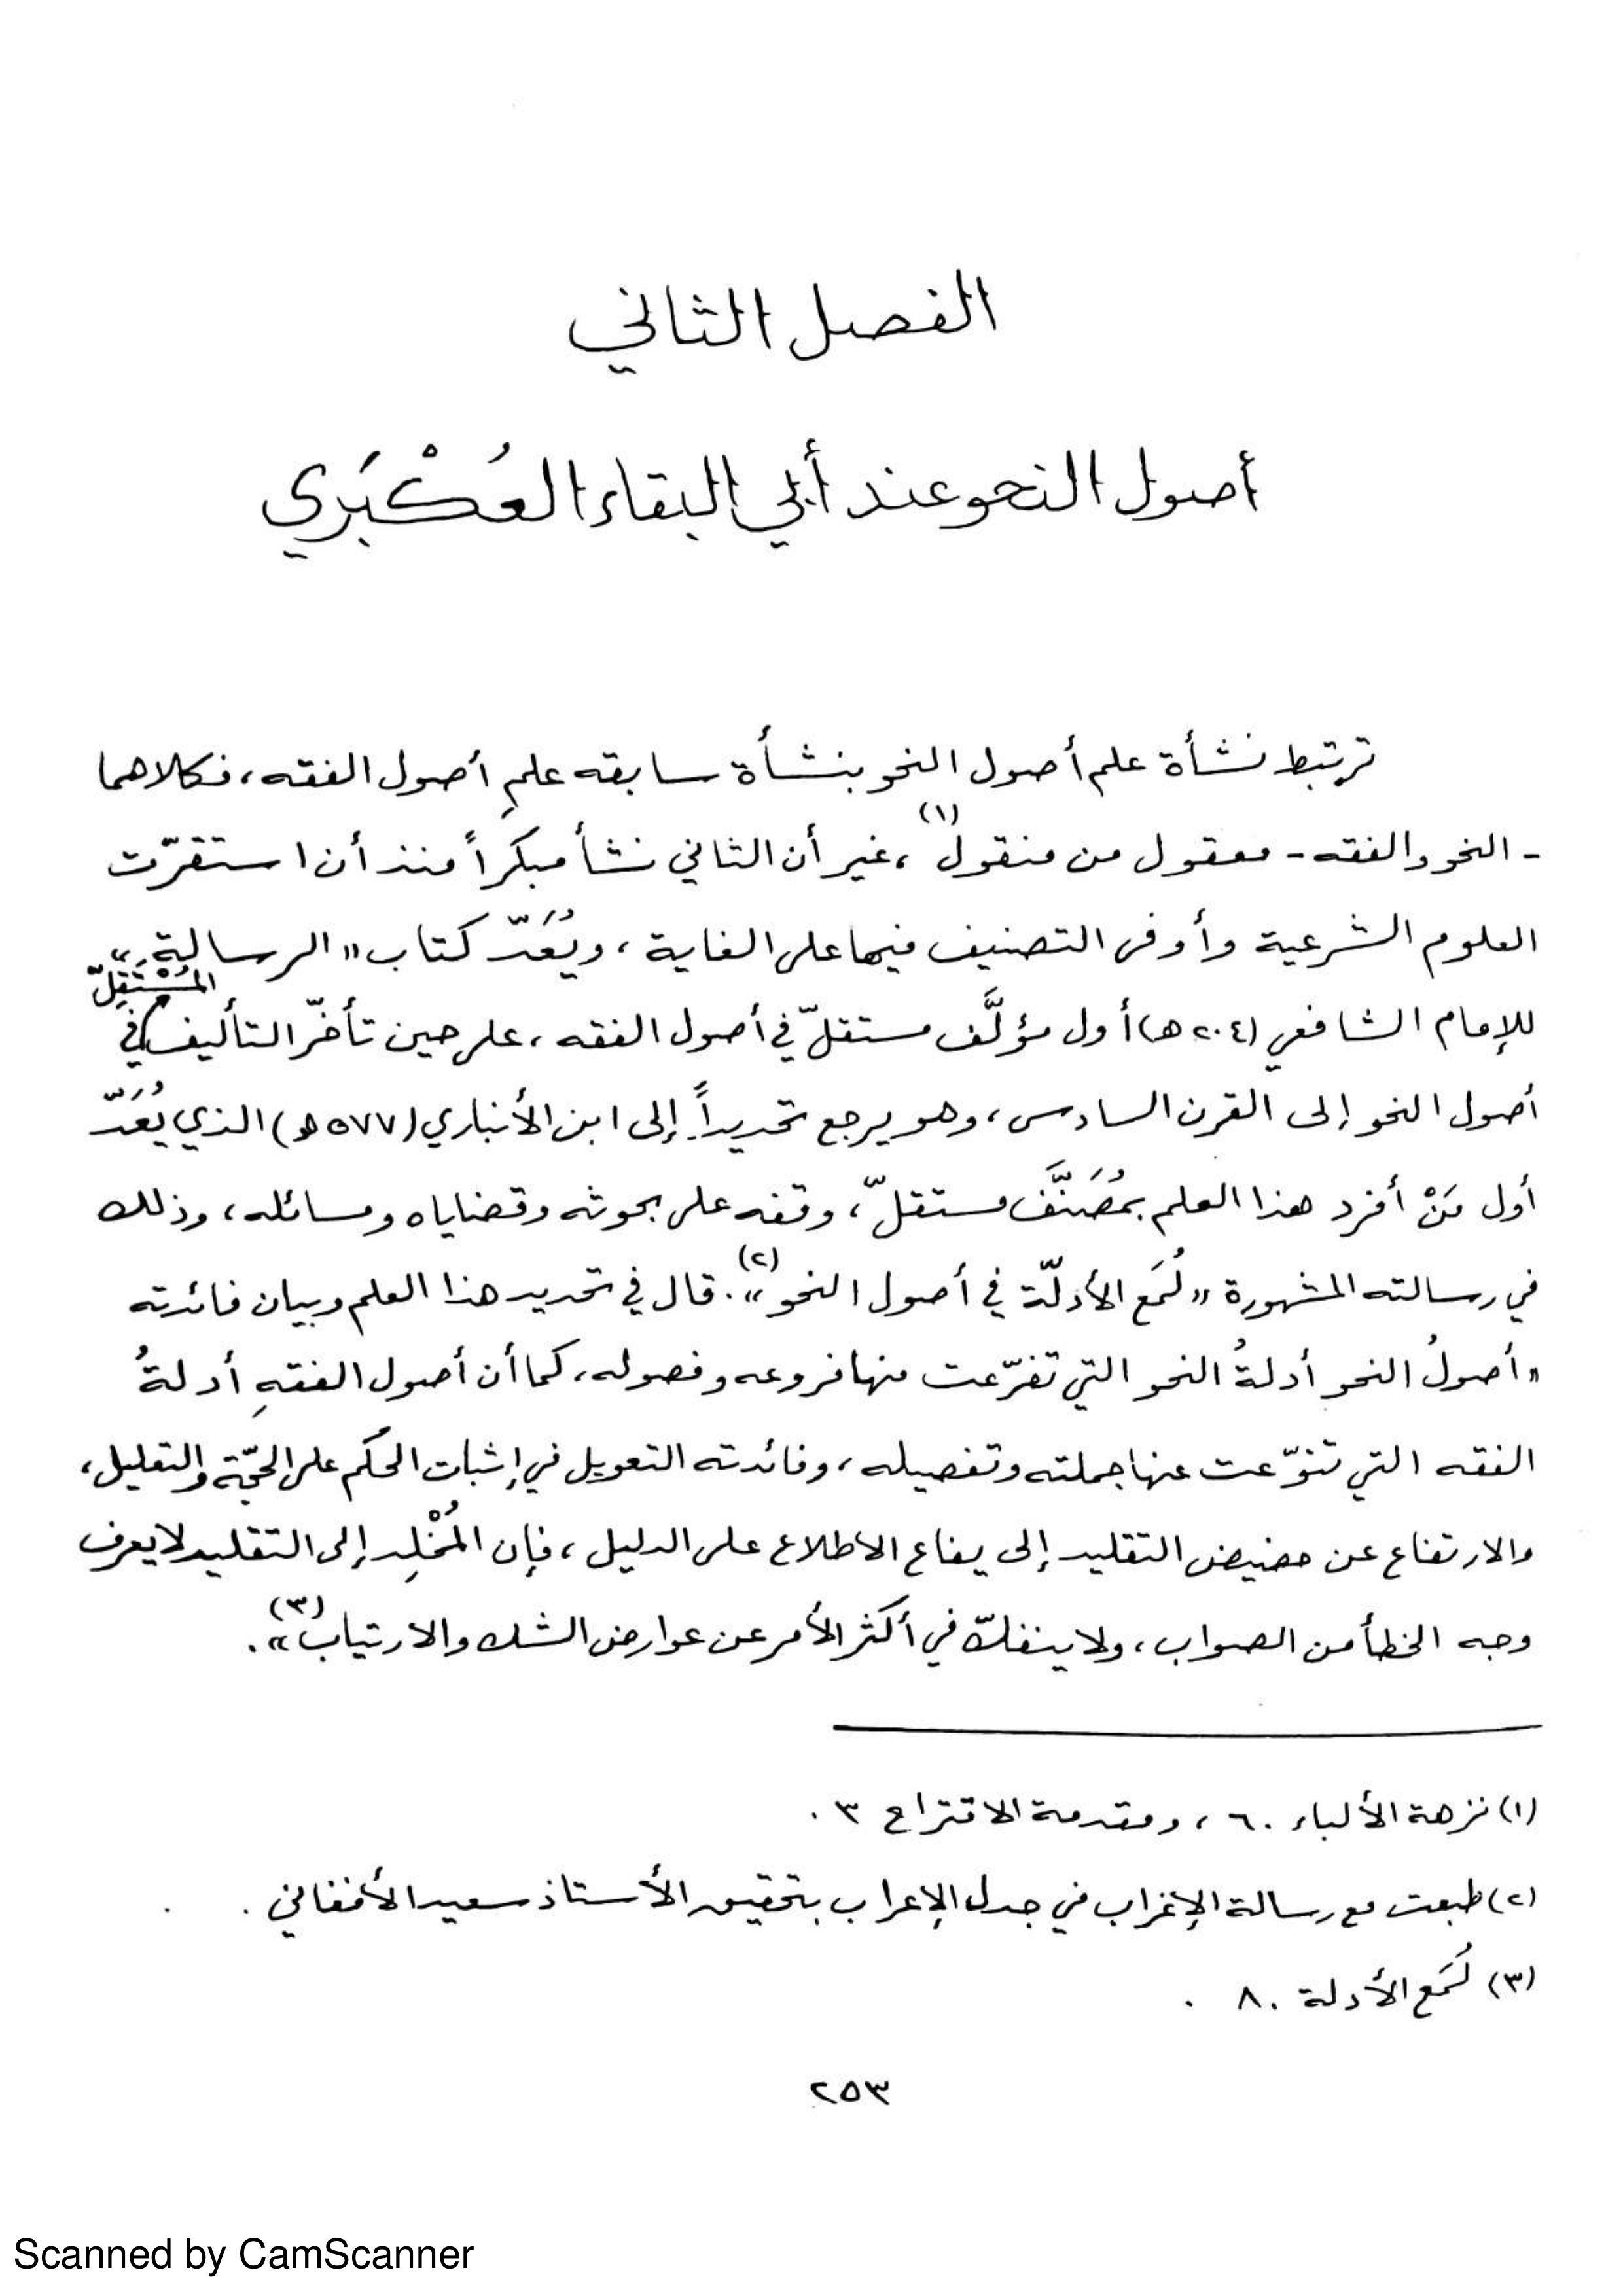 الفصل الثاني
أصول النحو عند أبي البقاء العُكْبَري
ترتبط نشأة علم أصول النحو بنشأة سابقه علمِ أصول الفقه، فكلاهما
- النحو والفقه - معقول من منقول(١)، غير أن الثاني نشأ مبكراً منذ أن استقرّت
العلوم الشرعية وأوفى التصنيف فيها على الغاية، ويُعَدّ كتاب «الرسالة»
للإمام الشافعي (٢٠٤ هـ) أول مؤلَّف مستقلّ في أصول الفقه، على حين تأخّر التأليف المُسْتَقِلّ في
أصول النحو إلى القرن السادس، وهو يرجع تحديداً إلى ابن الأنباري (٥٧٧ هـ) الذي يُعَدّ
أول مَنْ أفرد هذا العلم بمُصَنَّف مستقلّ، وقفه على بحوثه وقضاياه ومسائله، وذلك
في رسالته المشهورة «لُمَع الأدلّة في أصول النحو»(٢). قال في تحديد هذا العلم وبيان فائدته
«أصولُ النحو أدلةُ النحو التي تفرّعت منها فروعه وفصوله، كما أن أصول الفقهِ أدلةُ
الفقه التي تنوّعت عنها جملته وتفصيله، وفائدته التعويل في إثبات الحكم على الحجّة والتعليل،
والارتفاع عن حضيض التقليد إلى يفاع الاطلاع على الدليل، فإن المُخْلِد إلى التقليد لا يعرف
وجه الخطأ من الصواب، ولا ينفكّ في أكثر الأمر عن عوارض الشك والارتياب»(٣).
(١) نزهة الألباء ٦٠، ومقدمة الاقتراح ٣.
(٢) طبعت مع رسالة الإغراب في جدل الإعراب بتحقيق الأستاذ سعيد الأفغاني.
(٣) لُمَع الأدلة ٨٠.
٢٥٣
Scanned by CamScanner